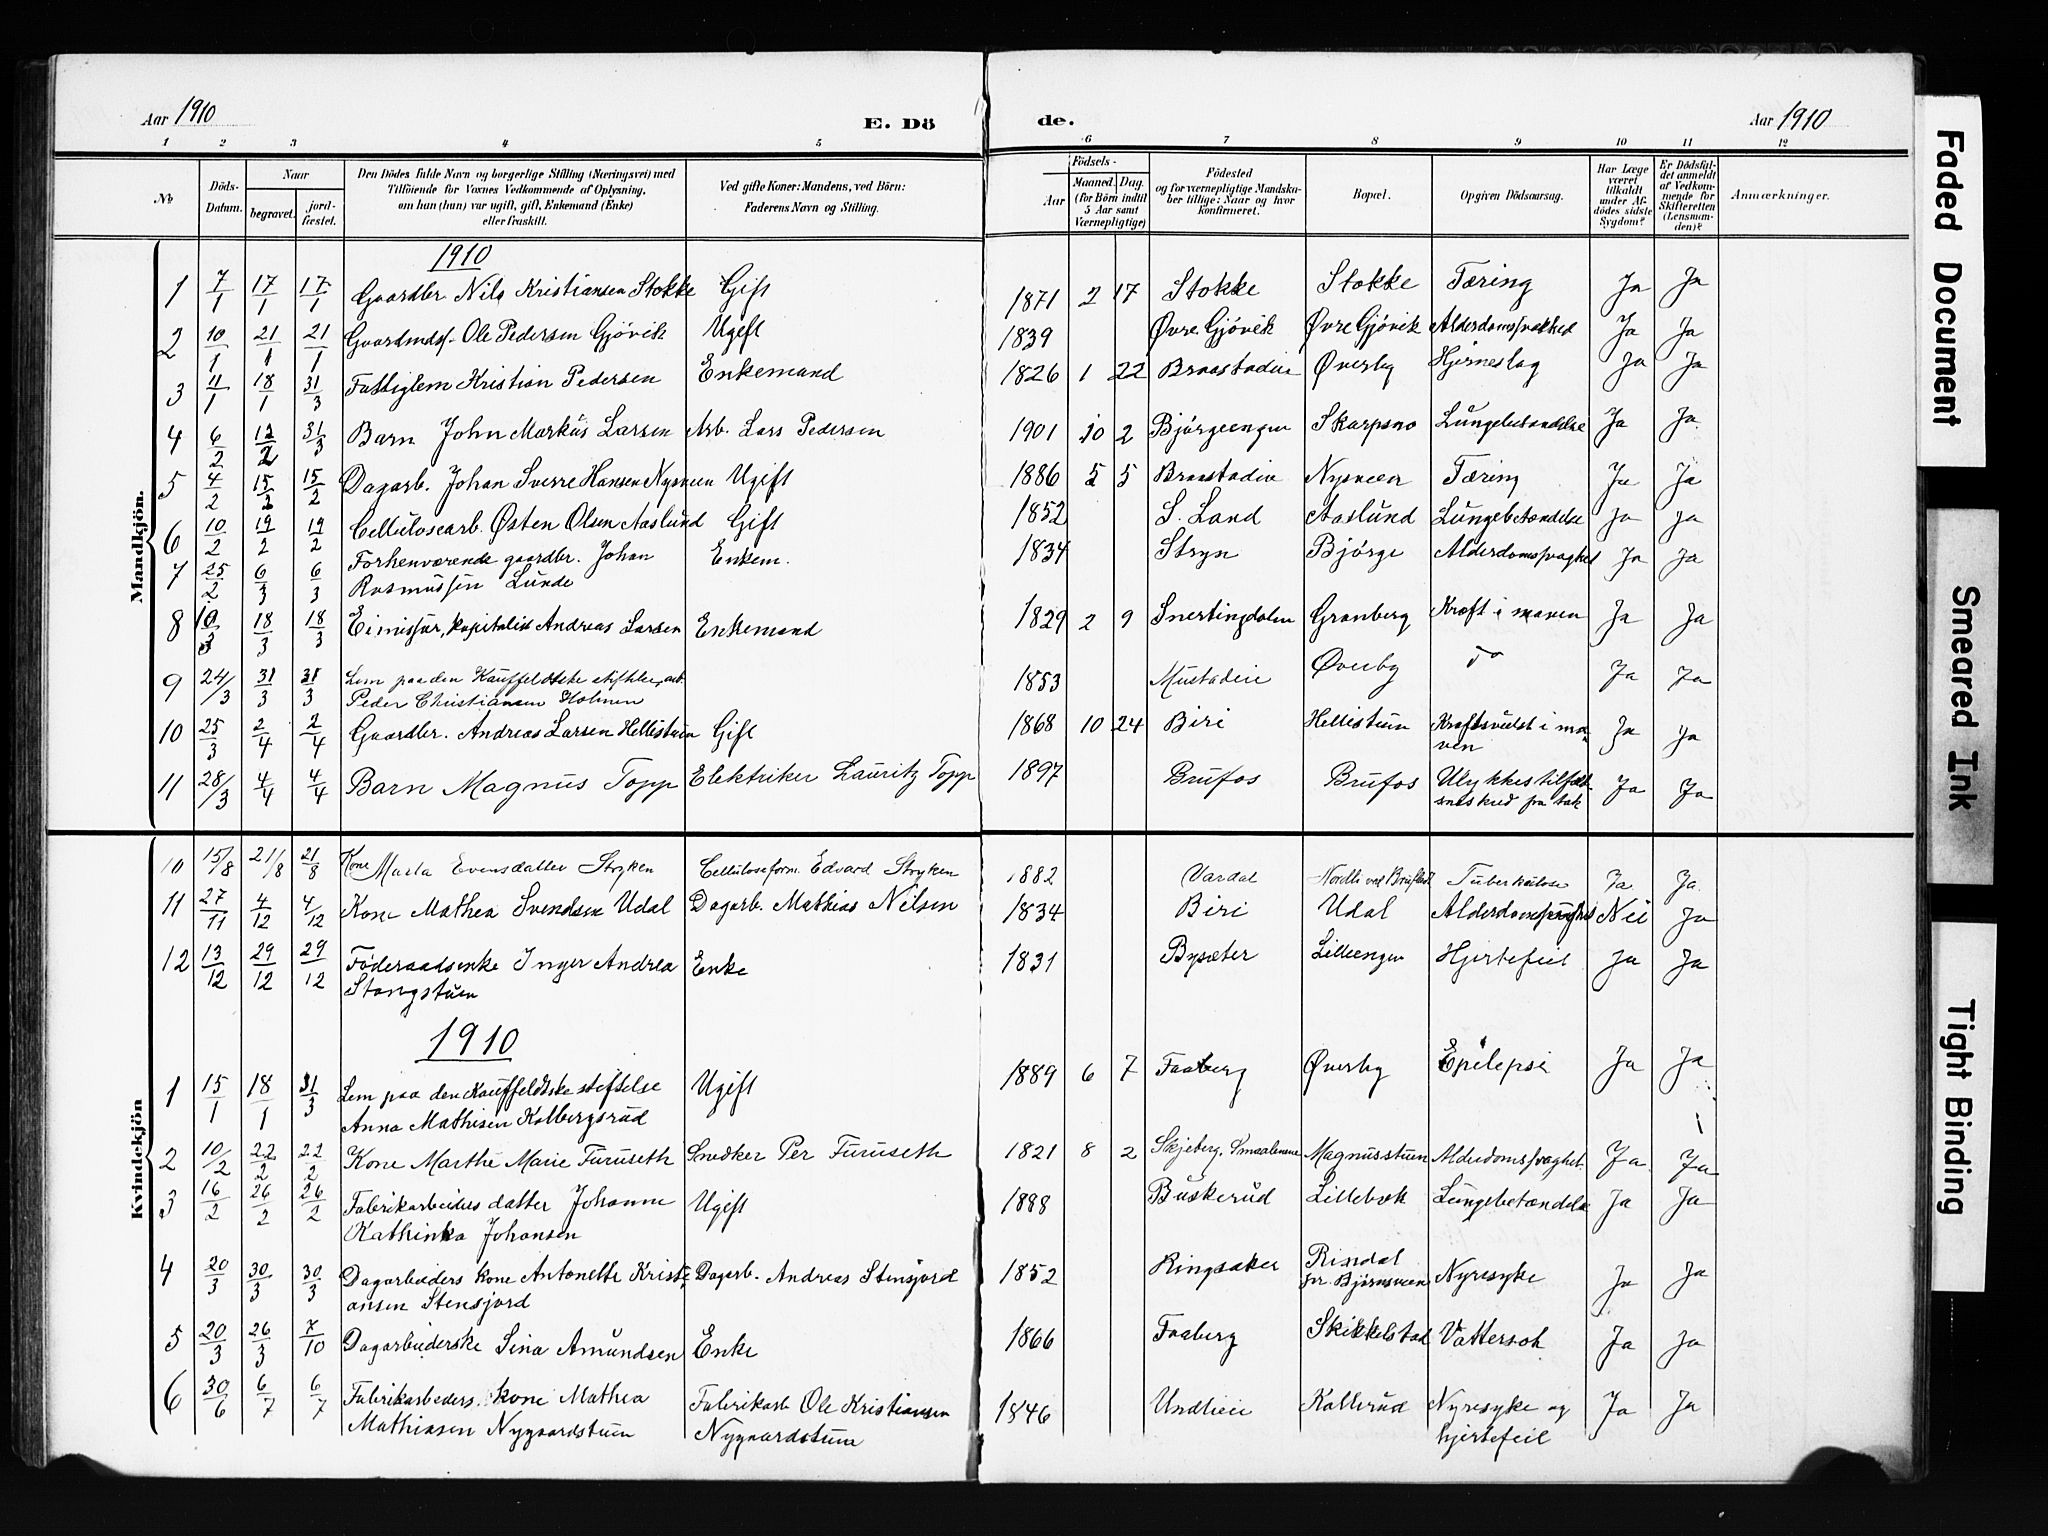 Aar 1910 E. Dö de. Aar 1910
1 2 3 4 5 6 7 8 9 10 11 12
No
Döds-
Datum.
Naar
begravet.
jord-
fæstet.
Den Dödes fulde Navn og borgerlige Stilling (Næringsvei) med
Tilföiende for Voxnes Vedkommende af Oplysning,
om han (hun) var ugift, gift, Enkemand (Enke)
eller fraskilt.
Ved gifte Koner: Mandens, ved Börn:
Faderens Navn og Stilling.
Födsels-
Aar
Maaned.
Dag.
(for Börn indtil
5 Aar samt
Værnepligtige)
Födested
og for værnepligtige Mandska-
ber tillige: Naar og hvor
konfirmeret.
Bopæl.
Opgiven Dödsaarsag.
Har Læge
været
tilkaldt
under Af-
dödes sidste
Sygdom?
Er Dödsfal-
det anmeldt
af Vedkom-
mende for
Skifteretten
(Lensman-
den)?
Anmærkninger.
Mandkjön.
1910
1 7/1 17/1 17/1 Gaardbr. Nils Kristiansen Stokke Gift 1871 2 17 Stokke Stokke Tæring Ja Ja
2 10/1 21/1 21/1 Gaardmdsf. Ole Pedersen Gjövik Ugift 1839 Øvre Gjövik Øvre Gjövik Alderdomssvakhed Ja Ja
3 11/1 18/1 31/3 Fattiglem Kristian Pedersen Enkemand 1826 1 22 Braastadlie Øverby Hjerneslag Ja Ja
4 6/2 12/2 31/3 Barn John Markus Larsen Arb. Lars Pedersen 1901 10 2 Bjørgeengen Skarpsno Lungebetændelse Ja Ja
5 4/2 15/2 15/2 Dagarb. Johan Sverre Hansen Nysveen Ugift 1886 5 5 Braastadlie Nysveen Tæring Ja Ja
6 10/2 19/2 19/2 Cellulosearb. Østen Olsen Aaslund Gift 1852 S. Land Aaslund Lungebetændelse Ja Ja
7 25/2 6/3 6/3 Forhenværende gaardbr. Johan Enkem. 1834 Stryn Bjørge Alderdomssvaghed Ja Ja
Rasmussen Lunde
8 10/3 18/3 18/3 Eimissær, kapitalist Andreas Larsen Enkemand 1829 2 9 Snertingdalen Granberg Kræft i maven Ja Ja
9 24/3 31/3 31/3 Lem paa den Kauffeldtske stiftelse, arb.
Peder Christiansen Holmen 1853 Mustadlie Øverby do Ja Ja
10 25/3 2/4 2/4 Gaardbr. Andreas Larsen Hellistuen Gift 1868 10 24 Biri Hellistuen Kræftsvulst i ma-
ven Ja Ja
11 28/3 4/4 4/4 Barn Magnus Topp Elektriker Lauritz Topp 1897 Brufos Brufos Ulykkestilfælde
sneskred fra tak Ja Ja
Kvindekjön
10 15/8 21/8 21/8 Kone Marta Evensdatter Stryken Celluloseform. Edvard Stryken 1882 Vardal Nordli ved Tuberkulose Ja Ja
11 27/11 4/12 4/12 Kone Mathea Svendsen Udal Dagarb. Mathias Nilsen 1834 Biri Udal Alderdomssvaghed Nei Ja
12 13/12 29/12 29/12 Föderaadsenke Inger Andrea Enke 1831 Bysæter Lilleengen Hjertefeil Ja Ja
Stangstuen
1910
1 15/1 18/1 31/3 Lem paa den Kauffeldtske stiftelse Ugift 1889 6 7 Faaberg Øverby Epilepsi Ja Ja
Anna Mathisen Kalbergsrud
2 10/2 22/2 22/2 Kone Marthe Marie Furuseth Snedker Per Furuseth 1821 8 2 Skjeberg, Smaalenene Magnusstuen Alderdomssvaghet Ja Ja
3 16/2 26/2 26/2 Fabrikarbeiders datter Johanne Ugift 1888 Buskerud Lillebæk Lungebetændelse Ja Ja
Kathinka Johansen
4 20/3 30/3 30/3 Dagarbeiders kone Antonette Kristi- Dagarb. Andreas Stensjord 1852 Ringsaker Rindal
pr. Bjørnsveen Nyresyke Ja Ja
ansen Stensjord
5 20/3 26/3 7/10 Dagarbeiderske Sina Amundsen Enke 1866 Faaberg Skikkelstad Vattersot Ja Ja
6 30/6 6/7 6/7 Fabrikarbeders kone Mathea Fabrikarb. Ole Kristiansen 1846 Undlien Kallerud Nyresyke og Ja Ja
Mathiasen Nygaardstuen Nygaardstuen hjertefeil
Faded Document
Smeared Ink
Tight Binding